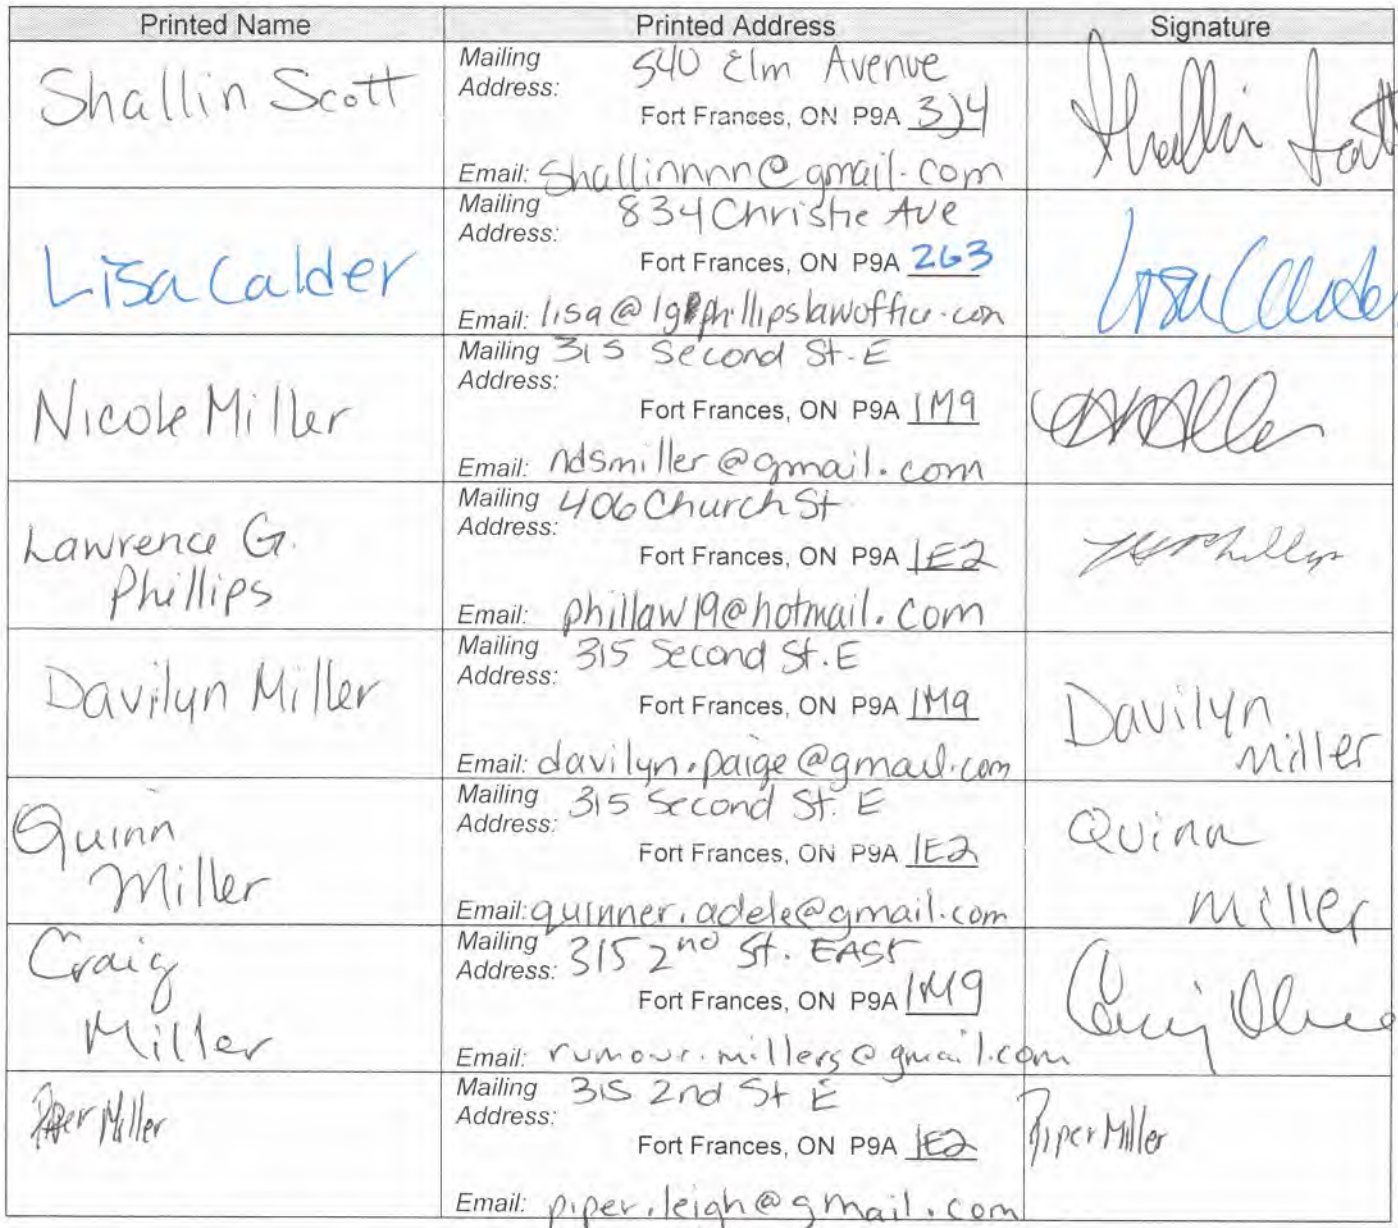 Printed Name Printed Address Signature
Shallin Scott
Mailing Address: 540 Elm Avenue
Fort Frances, ON P9A 3J4
Email: Shallinnnn@gmail.com
Shallin Scott
Lisa Calder
Mailing Address: 834 Christie Ave
Fort Frances, ON P9A 2G3
Email: lisa@lgphillipslawoffice.com
Lisa Calder
Nicole Miller
Mailing Address: 315 Second St. E
Fort Frances, ON P9A 1M9
Email: ndsmiller@gmail.com
Lawrence G.
Phillips
Mailing Address: 406 Church St
Fort Frances, ON P9A 1E2
Email: phillaw19@hotmail.com
LG Phillips
Davilyn Miller
Mailing Address: 315 Second St. E
Fort Frances, ON P9A 1M9
Email: davilyn.paige@gmail.com
Davilyn
Miller
Quinn
Miller
Mailing Address: 315 Second St. E
Fort Frances, ON P9A 1E2
Email: quinner.adele@gmail.com
Quinn
Miller
Craig
Miller
Mailing Address: 315 2nd St. EAST
Fort Frances, ON P9A 1M9
Email: rumour.millers@gmail.com
Piper Miller
Mailing Address: 315 2nd St E
Fort Frances, ON P9A 1E2
Email: piper.leigh@gmail.com
Piper Miller